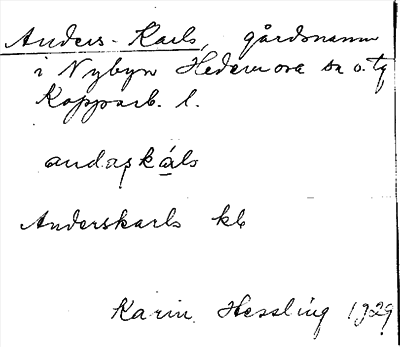 Anders-Karls, gårdsnamn
i Nybyn Hedemora sn o. tg
Kopparb. l.
andaskáls
Anderskarls kb
Karin Hessling 1929